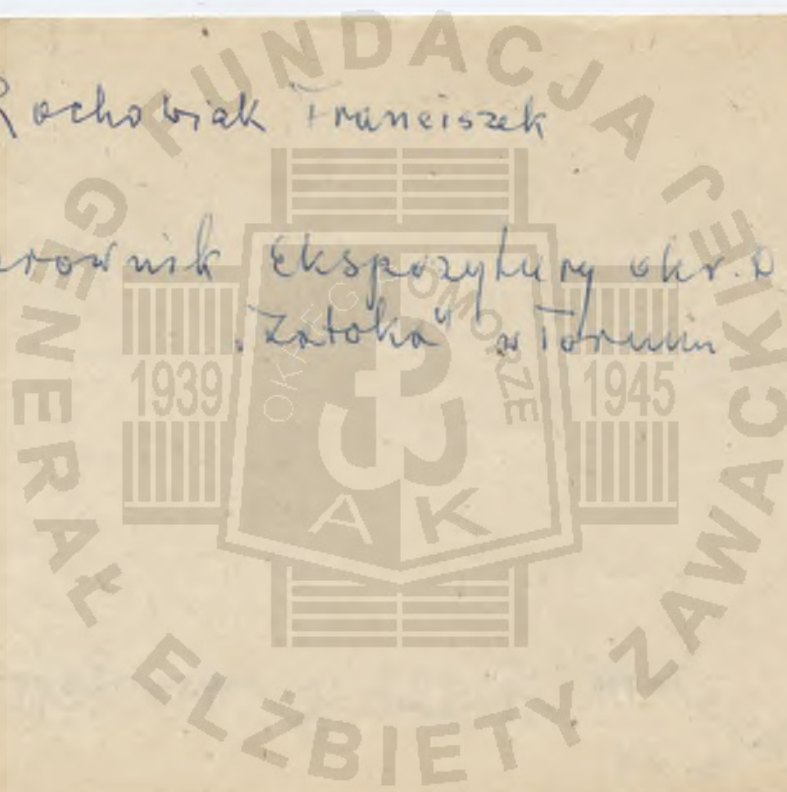 Rochowiak Franciszek
rownik Ekspozytury okr. D
"Zatoka" w Toruniu
FUNDACJA GENERAŁ ELŻBIETY ZAWACKIEJ
OKRĘG POMORZE
1939
1945
AK